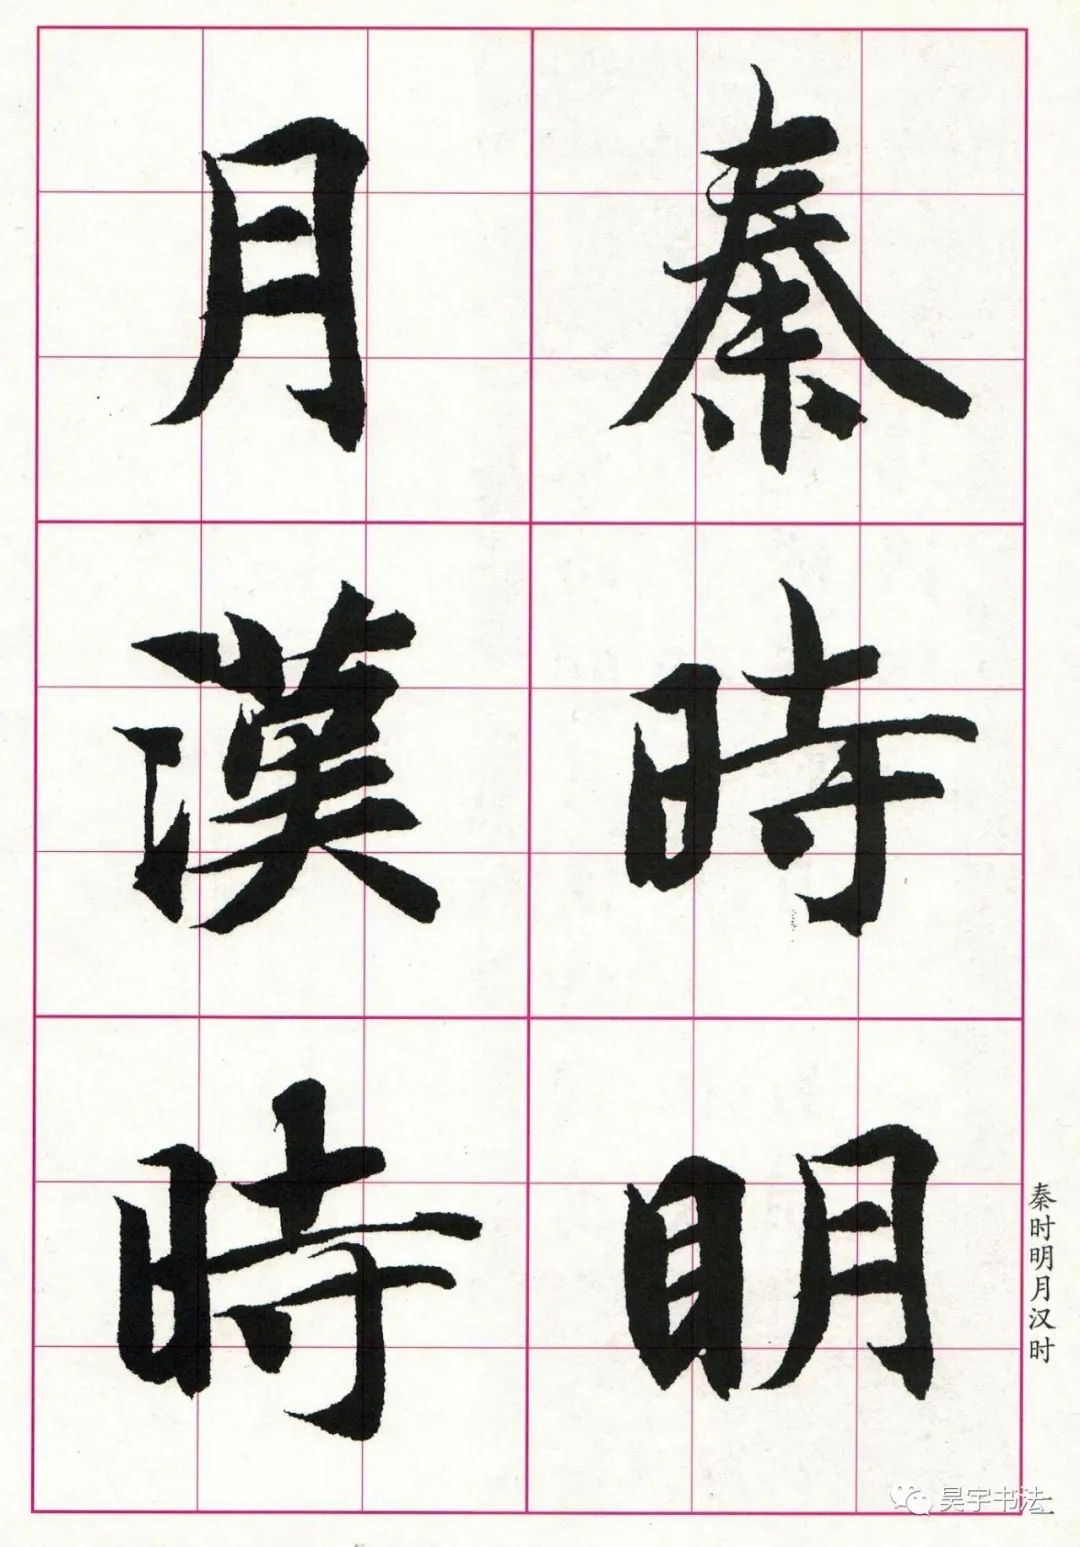 秦時明
月漢時
秦时明月汉时
昊宇书法